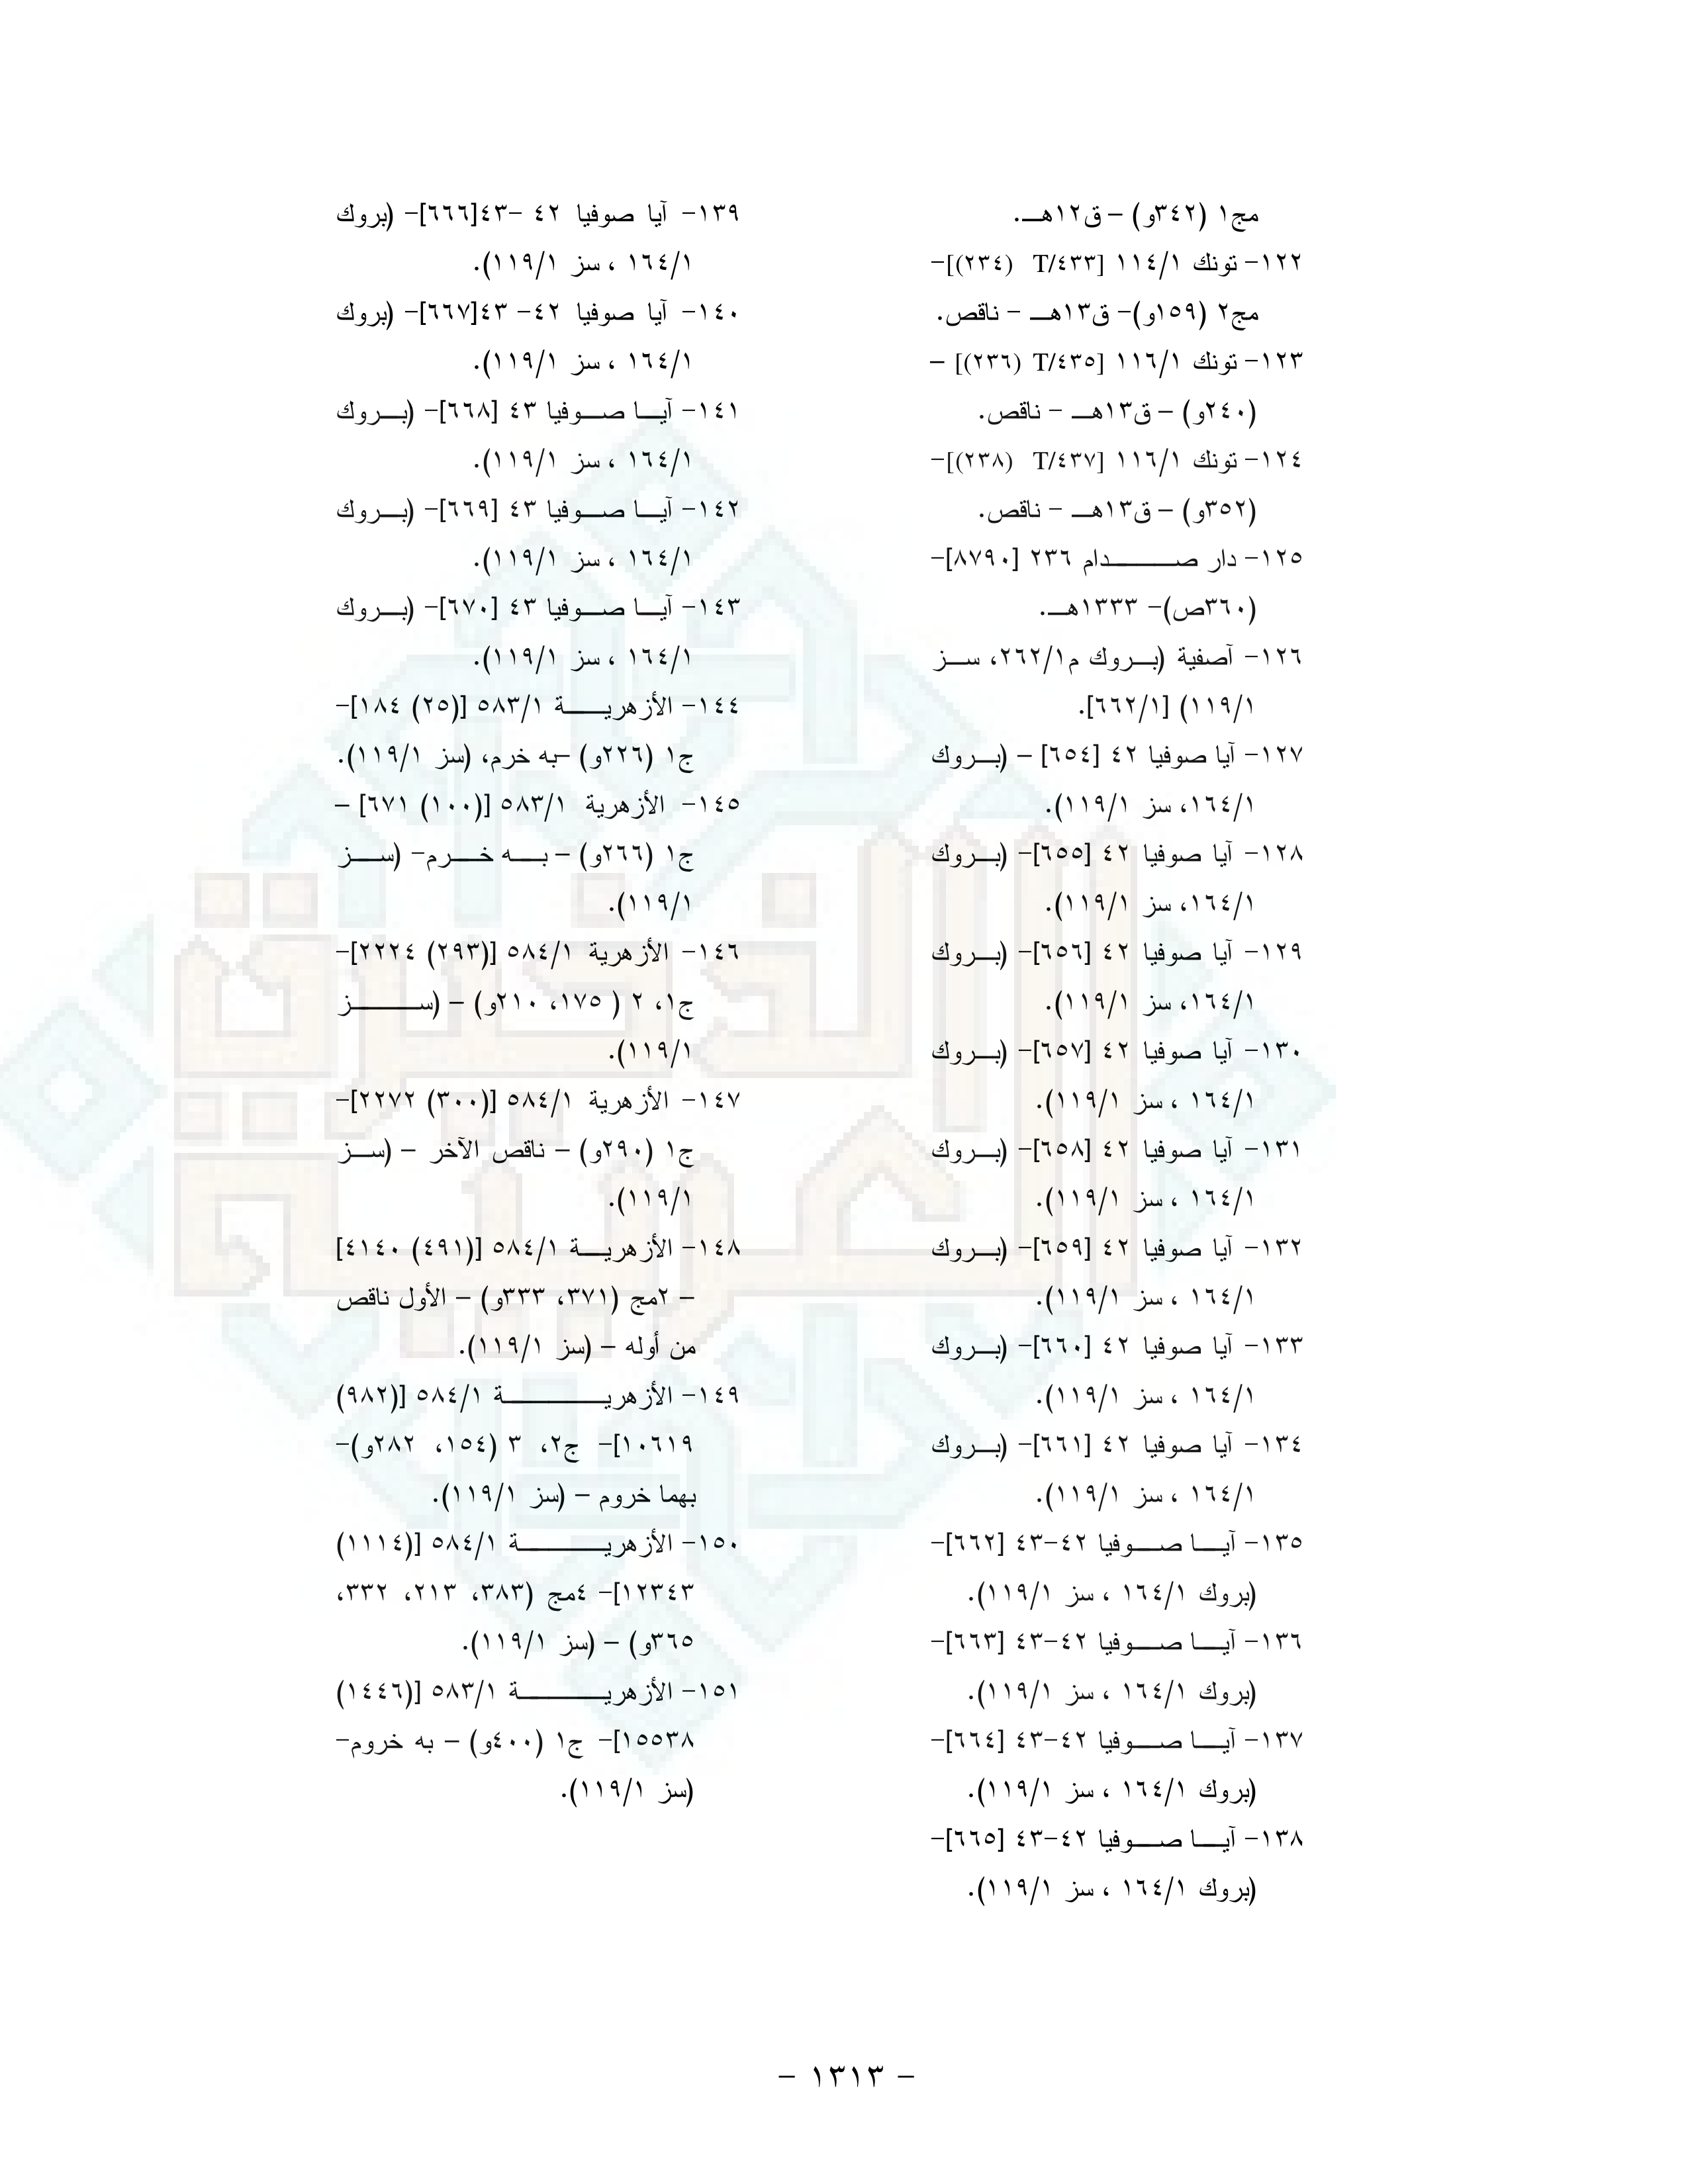 مج١ (٣٤٢و) – ق١٢هـ.
١٢٢- تونك ١١٤/١ [T/٤٣٣ (٢٣٤)]-
مج٢ (١٥٩و)- ق١٣هـ – ناقص.
١٢٣- تونك ١١٦/١ [T/٤٣٥ (٢٣٦)] –
(٢٤٠و) – ق١٣هـ – ناقص.
١٢٤- تونك ١١٦/١ [T/٤٣٧ (٢٣٨)]-
(٣٥٢و) – ق١٣هـ – ناقص.
١٢٥- دار صدام ٢٣٦ [٨٧٩٠]-
(٣٦٠ص)- ١٣٣٣هـ.
١٢٦- آصفية (بروك م٢٦٢/١، سز
١١٩/١) [٦٦٢/١].
١٢٧- آيا صوفيا ٤٢ [٦٥٤] – (بروك
١٦٤/١، سز ١١٩/١).
١٢٨- آيا صوفيا ٤٢ [٦٥٥]- (بروك
١٦٤/١، سز ١١٩/١).
١٢٩- آيا صوفيا ٤٢ [٦٥٦]- (بروك
١٦٤/١، سز ١١٩/١).
١٣٠- آيا صوفيا ٤٢ [٦٥٧]- (بروك
١٦٤/١ ، سز ١١٩/١).
١٣١- آيا صوفيا ٤٢ [٦٥٨]- (بروك
١٦٤/١ ، سز ١١٩/١).
١٣٢- آيا صوفيا ٤٢ [٦٥٩]- (بروك
١٦٤/١ ، سز ١١٩/١).
١٣٣- آيا صوفيا ٤٢ [٦٦٠]- (بروك
١٦٤/١ ، سز ١١٩/١).
١٣٤- آيا صوفيا ٤٢ [٦٦١]- (بروك
١٦٤/١ ، سز ١١٩/١).
١٣٥- آيا صوفيا ٤٢-٤٣ [٦٦٢]-
(بروك ١٦٤/١ ، سز ١١٩/١).
١٣٦- آيا صوفيا ٤٢-٤٣ [٦٦٣]-
(بروك ١٦٤/١ ، سز ١١٩/١).
١٣٧- آيا صوفيا ٤٢-٤٣ [٦٦٤]-
(بروك ١٦٤/١ ، سز ١١٩/١).
١٣٨- آيا صوفيا ٤٢-٤٣ [٦٦٥]-
(بروك ١٦٤/١ ، سز ١١٩/١).
١٣٩- آيا صوفيا ٤٢ -٤٣[٦٦٦]- (بروك
١٦٤/١ ، سز ١١٩/١).
١٤٠- آيا صوفيا ٤٢- ٤٣[٦٦٧]- (بروك
١٦٤/١ ، سز ١١٩/١).
١٤١- آيا صوفيا ٤٣ [٦٦٨]- (بروك
١٦٤/١ ، سز ١١٩/١).
١٤٢- آيا صوفيا ٤٣ [٦٦٩]- (بروك
١٦٤/١ ، سز ١١٩/١).
١٤٣- آيا صوفيا ٤٣ [٦٧٠]- (بروك
١٦٤/١ ، سز ١١٩/١).
١٤٤- الأزهرية ٥٨٣/١ [(٢٥) ١٨٤]-
ج١ (٢٢٦و) –به خرم، (سز ١١٩/١).
١٤٥- الأزهرية ٥٨٣/١ [(١٠٠) ٦٧١] –
ج١ (٢٦٦و) – به خرم- (سز
١١٩/١).
١٤٦- الأزهرية ٥٨٤/١ [(٢٩٣) ٢٢٢٤]-
ج١، ٢ ( ١٧٥، ٢١٠و) – (سز
١١٩/١).
١٤٧- الأزهرية ٥٨٤/١ [(٣٠٠) ٢٢٧٢]-
ج١ (٢٩٠و) – ناقص الآخر – (سز
١١٩/١).
١٤٨- الأزهرية ٥٨٤/١ [(٤٩١) ٤١٤٠]
– ٢مج (٣٧١، ٣٣٣و) – الأول ناقص
من أوله – (سز ١١٩/١).
١٤٩- الأزهرية ٥٨٤/١ [(٩٨٢)
١٠٦١٩]- ج٢، ٣ (١٥٤، ٢٨٢و)-
بهما خروم – (سز ١١٩/١).
١٥٠- الأزهرية ٥٨٤/١ [(١١١٤)
١٢٣٤٣]- ٤مج (٣٨٣، ٢١٣، ٣٣٢،
٣٦٥و) – (سز ١١٩/١).
١٥١- الأزهرية ٥٨٣/١ [(١٤٤٦)
١٥٥٣٨]- ج١ (٤٠٠و) – به خروم-
(سز ١١٩/١).
– ١٣١٣ –